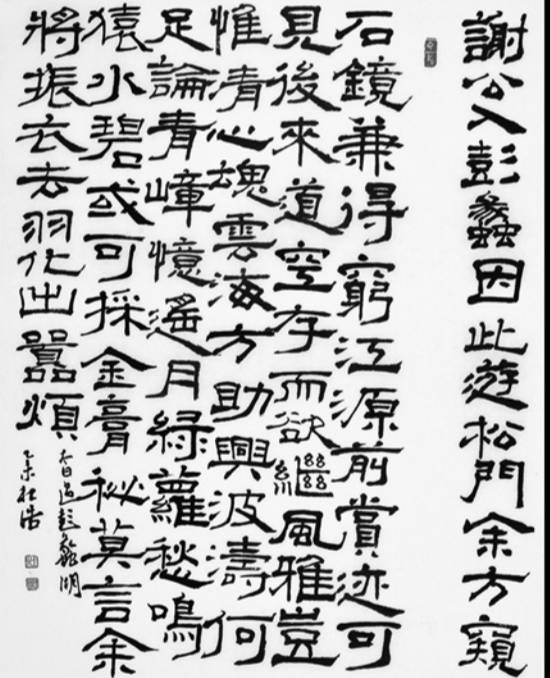 謝公入彭蠡因此遊松門余方窺
石鏡兼得窮江源前賞迹可
見後來道空存而欲繼風雅豈
惟清心魂雲海方助興波濤何
足論青嶂憶遙月綠蘿愁鳴
猿水碧或可採金膏秘莫言余
將振衣去羽化出囂煩
太白過彭蠡湖
乙未杜浩